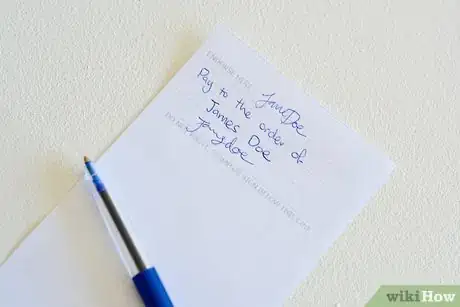 ENDORSE HERE
Jane Doe
Pay to the order of
James Doe
jamesdoe
DO NOT WRITE, STAMP, OR SIGN BELOW THIS LINE
wikiHow